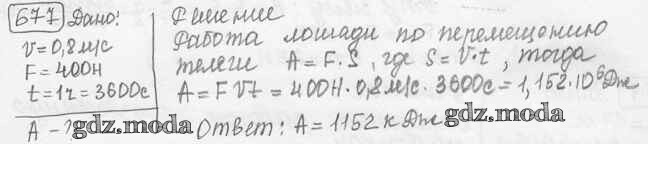 677 Дано:
V=0,8м/с
F=400Н
t=1ч=3600с
А-?
Решение
Работа лошади по перемещению
телеги A=F·S, где S=V·t, тогда
A=FVt=400Н·0,8м/с·3600с=1,152·10⁶Дж
Ответ: A=1152кДж
gdz.moda
gdz.moda